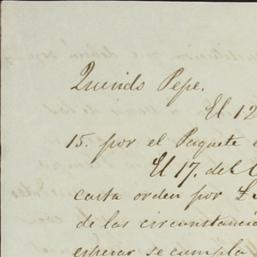 Querido Pepe.
El 12
15. por el Paquete
El 17. del
carta orden por £
de las circunstancia
esperar se cumpla